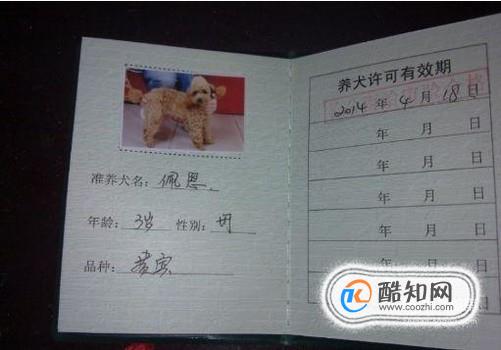 准养犬名:佩恩
年龄:3岁 性别:
品种:贵宾
养犬许可有效期
2014年4月18日
年 月 日
年 月 日
年 月 日
年 月 日
年 月 日
酷知网
www.coozhi.com